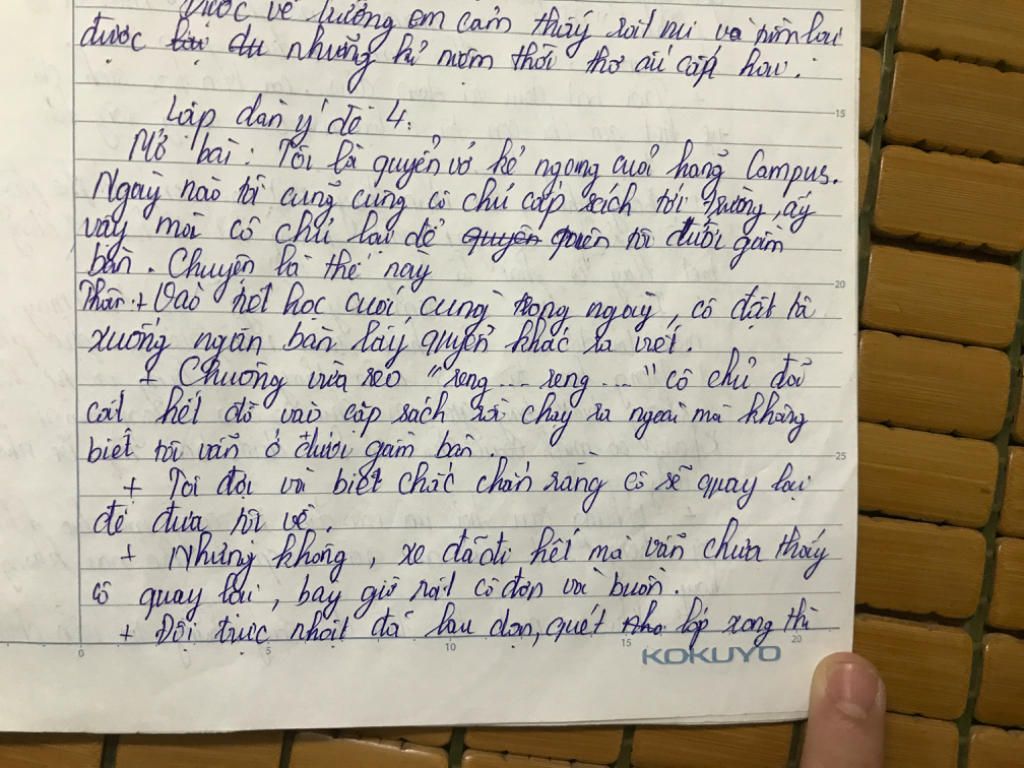 được về trường em cảm thấy rất vui và tìm lại
được những kỉ niệm thời thơ ấu cấp hai.
15
Lập dàn ý đề 4:
Mở bài: Tôi là quyển vở kẻ ngang cuả hãng Campus.
Ngaỳ nào tôi cũng cùng cô chủ cắp sách tới trường, ấy
vậy mà cô chủ lại để quên tôi dưới gầm
bàn. Chuyện là thế này
20
Thân: + Vaò tiết học cuôí, cùng trong ngaỳ, cô đặt tôi
xuống ngăn bàn lấy quyển khác ra viết.
+ Chuông vừa reo "reng... reng..." cô chủ đã
cất hết đồ vaò cặp sách rồi chạy ra ngoaì mà không
biết tôi vẫn ở dưới gầm bàn.
25
+ Tôi đợi và biết chắc chắn rằng cô sẽ quay lại
để đưa tôi về.
+ Nhưng không, xe đã đi hết mà vẫn chưa thấy
cô quay lại, bây giờ rất cô đơn và buồn.
+ Đôị trực nhật đã lau dọn, quét lớp xong thì
0 5 10 15 20
KOKUYO